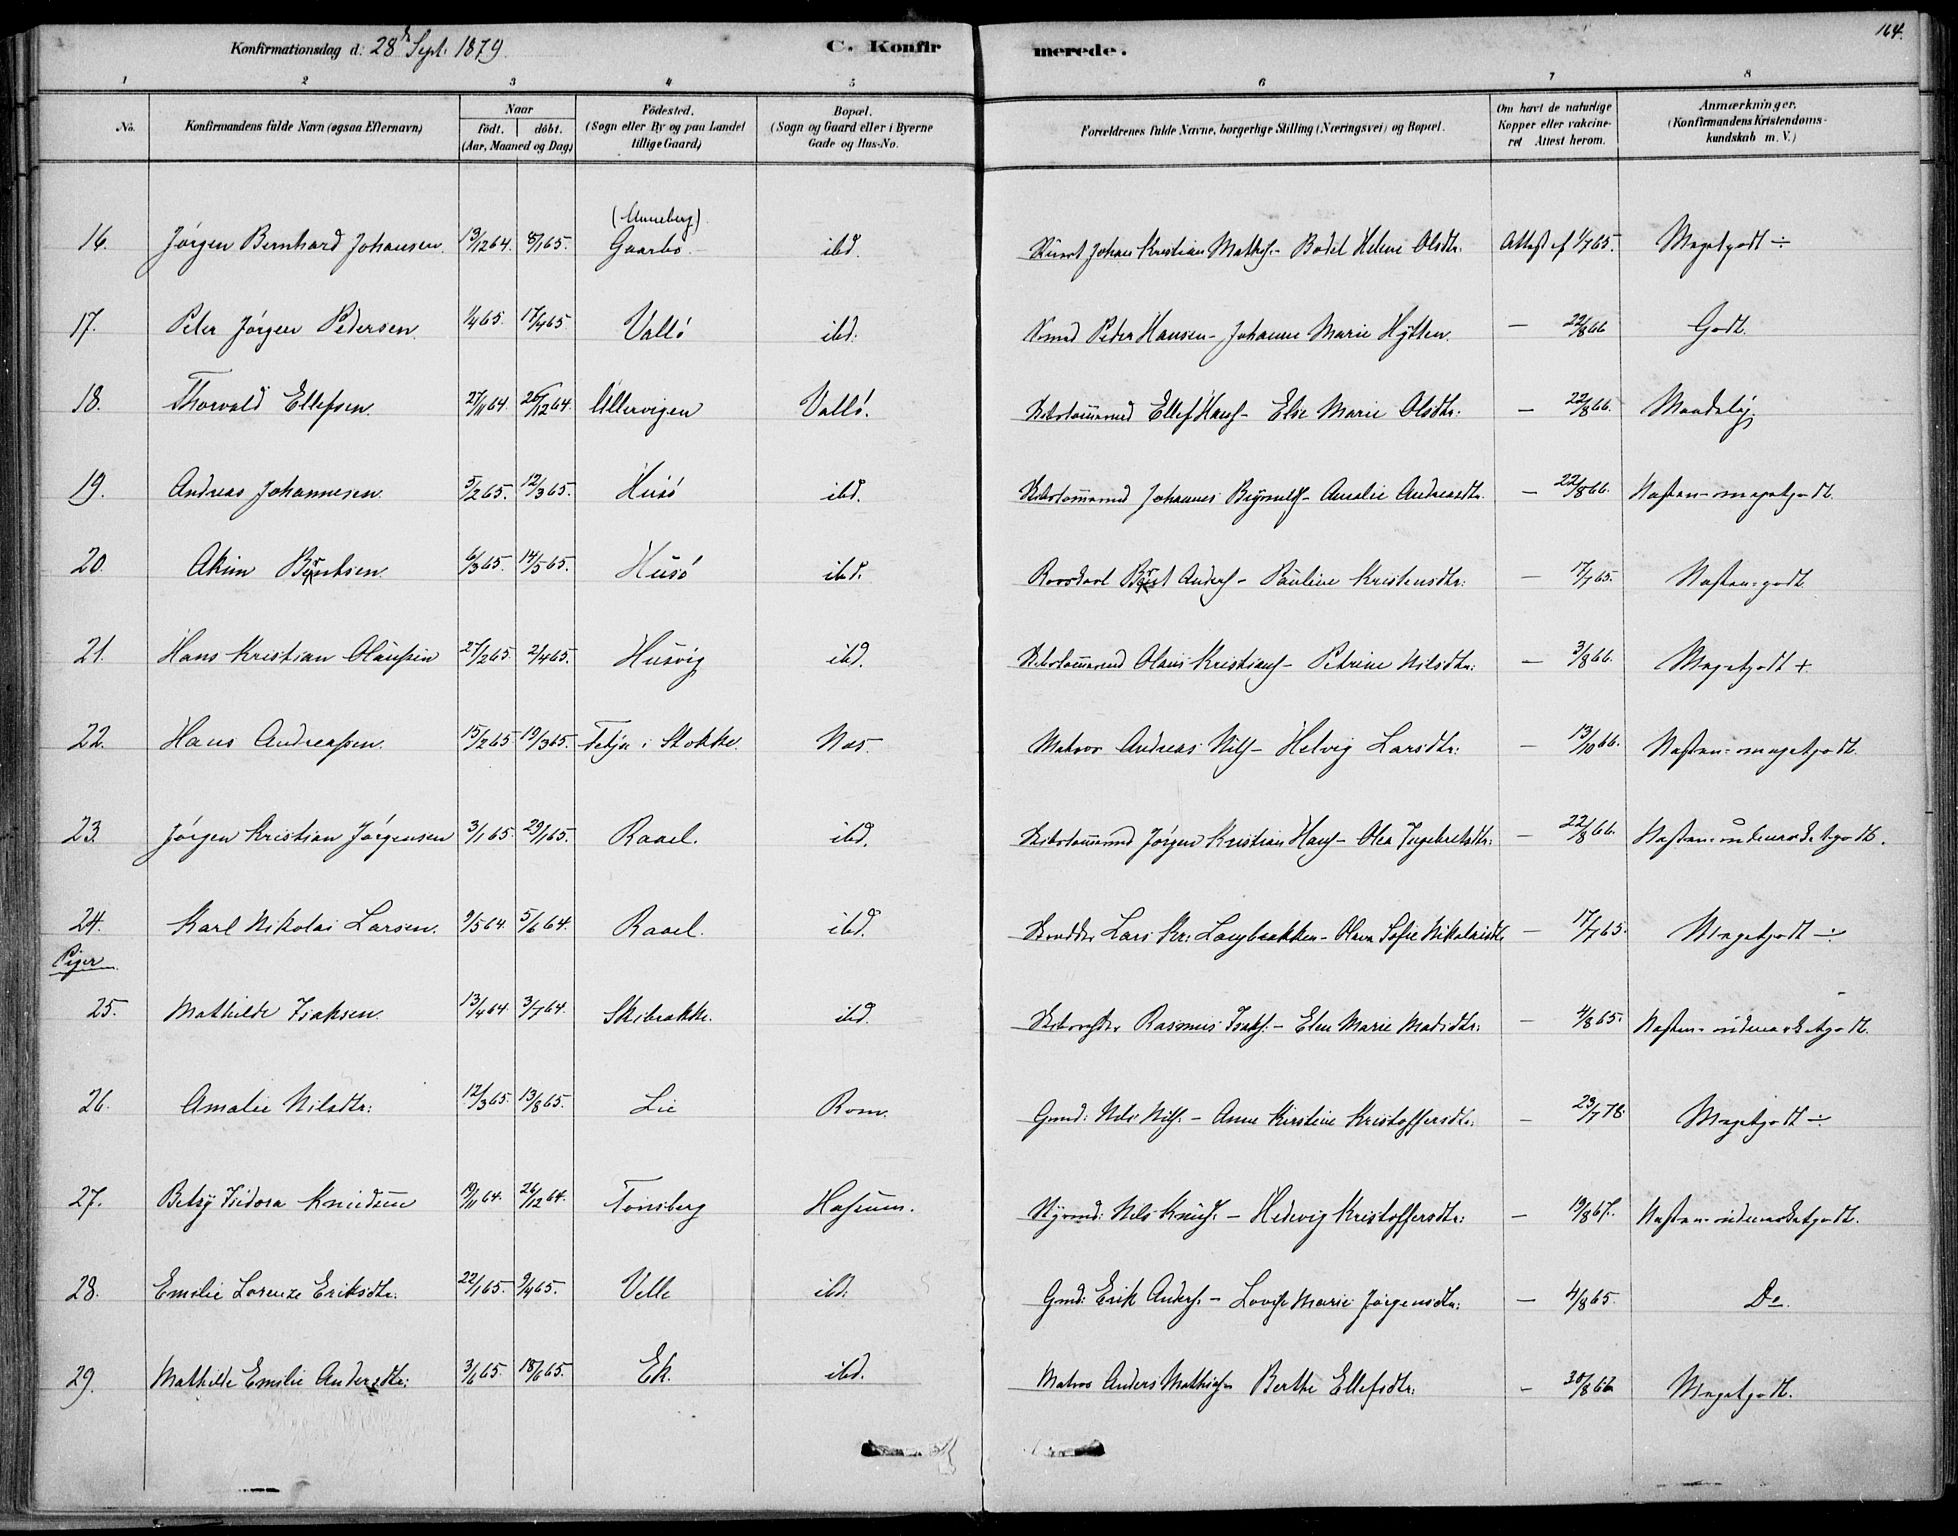 164.
Konfirmationsdag d. 28de Sept. 1879. C. Konfirmerede.
1 2 3 4 5 6 7 8
No. Konfirmandens fulde Navn (ogsaa Efternavn) Naar födt. döbt. (Aar, Maaned og Dag) Födested. (Sogn eller By og paa Landet tillige Gaard) Bopæl. (Sogn og Gaard eller i Byerne Gade og Hus-No. Forældrenes fulde Navne, borgerlige Stilling (Næringsvei) og Bopæl. Om havt de naturlige Kopper eller vakcineret Attest herom. Anmærkninger, (Konfirmandens Kristendomskundskab m. V.)
16. Jørgen Bernhard Johansen. 13/12 64. 8/1 65. (Unneberg) Gaarbo. ibd. Johan Kristian Maths. - Bodil Helene Olsdtr. Attest af 1/7 65. Megetgodt ÷
17. Peter Jørgen Pedersen. 1/4 65. 17/4 65 Vallö ibd. Peder Hansen - Johanne Marie Hytten. — 22/8 66 Godt.
18. Thorvald Ellefsen. 27/11 64 26/12 64. Ullervigen Vallö. Skibstømmermd Ellef Hans - Else Marie Olsdtr. — 22/8 66. Maadelig.
19. Andreas Johannesen. 5/2 65. 12/3 65. Husö ibd. Skibstømmermd Johannes Brynulfs - Amalie Andreasdtr. — 22/8 66. Næsten - megetgodt.
20. Akim Berntsen. 6/3 65. 14/5 65. Husö ibd. Bernt Anders - Pauline Kristensdtr. — 17/7 65. Næsten - godt.
21. Hans Kristian Olaussen 27/2 65 2/4 65. Husvig ibd. Skibstømmermd Olaus Kristians - Petrine Nilsdtr. — 3/8 66. Megetgodt +
22. Hans Andreassen. 15/2 65 19/3 65. i Stokke. Næs. Matros Andreas Nils - Helvig Larsdtr. — 13/10 66. Næsten - megetgodt.
23. Jørgen Kristian Jørgensen 3/1 65 29/1 65. Raael. ibd. Skibstømmermd Jørgen Kristian Hans - Olea Ingebretsdtr. — 22/8 66. Næsten - udmærketgodt.
24. Karl Nikolai Larsen. 9/5 64 5/6 64. Raael. ibd. Lars Kr. - Olava Sofie Nikolaisdtr. — 17/7 65. Megetgodt ÷
Piger
25. Mathilde Isaksen. 13/4 64 3/7 64. Skibrakke. ibd. Rasmus Isaks. - Elen Marie Madsdtr. — 4/8 65. Næsten - udmærketgodt.
26. Amalie Nilsdtr. 12/3 65. 13/8 65. Lie Rom. Gmd. Nils Nils. - Anne Kirstine Kristoffersdtr. — 23/7 78. Megetgodt ÷
27. Betsy Isidora Knudsen 19/11 64. 26/12 64. Tönsberg Hassum. Nils Knuds. - Hedevig Kristoffersdtr. — 19/8 67. Næsten - udmærketgodt.
28. Emilie Lorenze Eriksdtr. 22/1 65. 9/4 65. Velle ibd. Gmd. Erik Anders. - Lovise Marie Jørgensdtr. — 4/8 65. Do.
29. Mathilde Emilie Andersdtr. 3/6 65. 18/6 65. Ek. ibd. Matros Anders Mathias - Berthe Ellefsdtr. — 30/8 66 Megetgodt.